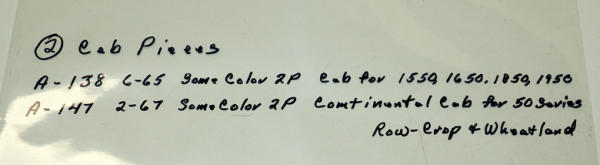 ② Cab Pieces
A-138 6-65 Some Color 2P Cab for 1550, 1650, 1850, 1950
A-147 2-67 Some Color 2P Continental Cab for 50 Series
Row-Crop & Wheatland